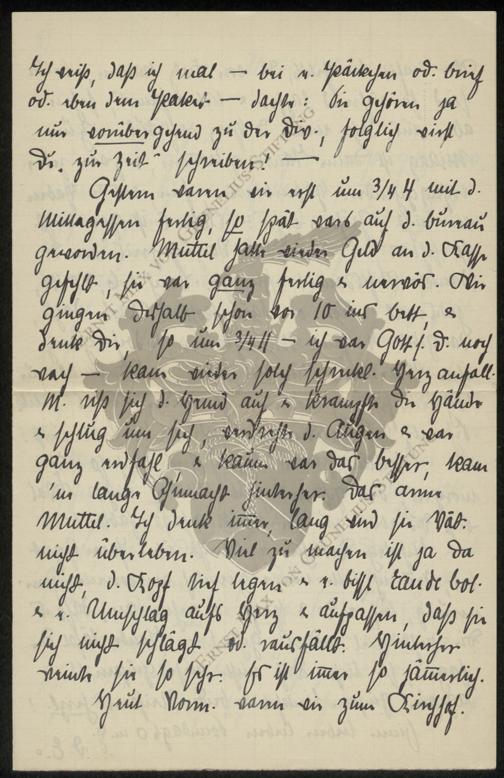 Ich weiß, daß ich mal — bei e. Päckchen od. brief
od. eben dem Paket — dachte: Sie gehören ja
nur vorübergehend zu der Div., folglich wirst
Du „zur Zeit" schreiben! —
Gestern waren wir erst um 3/4 4 mit d.
Mittagessen fertig, so spät wars auf d. bureau
geworden. Muttel hatte wieder Geld an d. Kasse
gefehlt, sie war ganz fertig & nervös. Wir
gingen deshalb schon vor 10 ins bett, &
denk Dir, so um 3/4 11 — ich war Gott s. D. noch
wach — kam wieder solch schreckl. Herzanfall.
M. riß sich d. Hemd auf & krampfte die Hände
& schlug um sich, verdrehte d. Augen & war
ganz erdfahl & kaum war das besser, kam
'ne lange Ohnmacht hinterher. Das arme
Muttel. Ich denk immer, lang wird sie Vat.
nicht überleben. Viel zu machen ist ja da
nicht, d. Kopf tief legen & e. bissl Eau de Col.
& e. Umschlag aufs Herz & aufpassen, daß sie
sich nicht schlägt od. rausfällt. Hinterher
weinte sie so sehr. Es ist immer so jämmerlich.
Heut Vorm. waren wir zum Kirchhof.
ERNST MAX VON GRUNELIUS-STIFTUNG
ERNST MAX VON GRUNELIUS-STIFTUNG